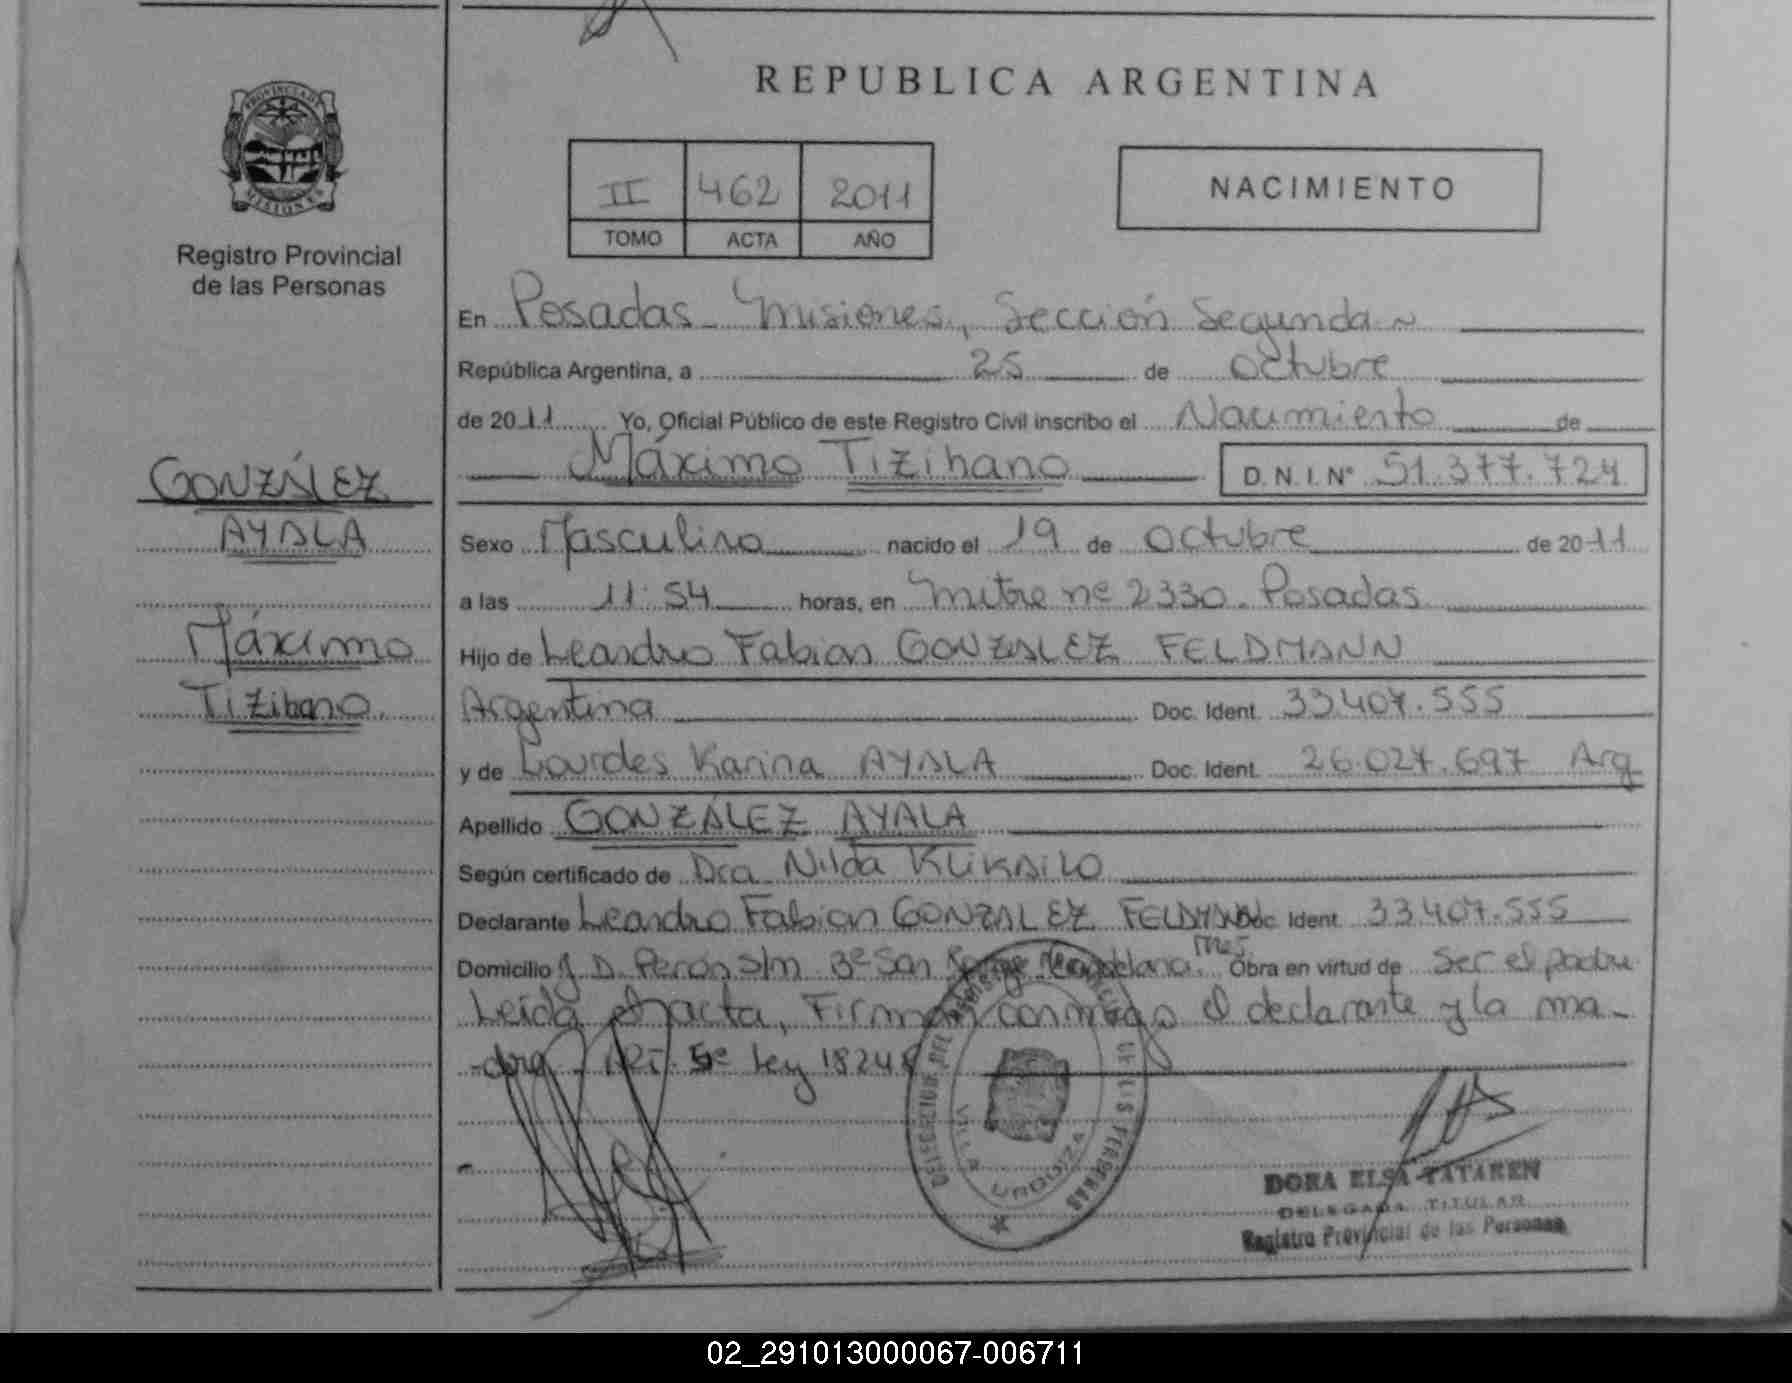 REPUBLICA ARGENTINA
PROVINCIA DE MISIONES
Registro Provincial
de las Personas
II 462 2011
TOMO ACTA AÑO
NACIMIENTO
En Posadas - Misiones, Sección Segunda
República Argentina, a 25 de Octubre
de 2011 Yo, Oficial Público de este Registro Civil inscribo el Nacimiento de
Máximo Tizihano D.N.I.Nº 51.377.724
GONZÁLEZ
AYALA
Máximo
Tizihano
Sexo Masculino nacido el 19 de Octubre de 2011
a las 11:54 horas, en Mitre nº 2330. Posadas
Hijo de Leandro Fabian GONZALEZ FELDMANN
Argentina Doc. Ident. 33.407.555
y de Lourdes Karina AYALA Doc. Ident. 26.027.697 Arg
Apellido GONZÁLEZ AYALA
Según certificado de Dra Nilda
Declarante Leandro Fabian GONZALEZ FELDMANN Doc. Ident. 33.407.555
Domicilio J D. Perón S/n Bº San Jorge Candelaria. Mnes Obra en virtud de Ser el padre
Leída el acta, Firman conmigo el declarante y la ma-
-dre. ART. 5º Ley 18248
DELEGACION DEL REGISTRO PROVINCIAL DE LAS PERSONAS
VILLA URQUIZA
DORA ELSA TATAREN
DELEGADA TITULAR
Registro Provincial de las Personas
02_291013000067-006711